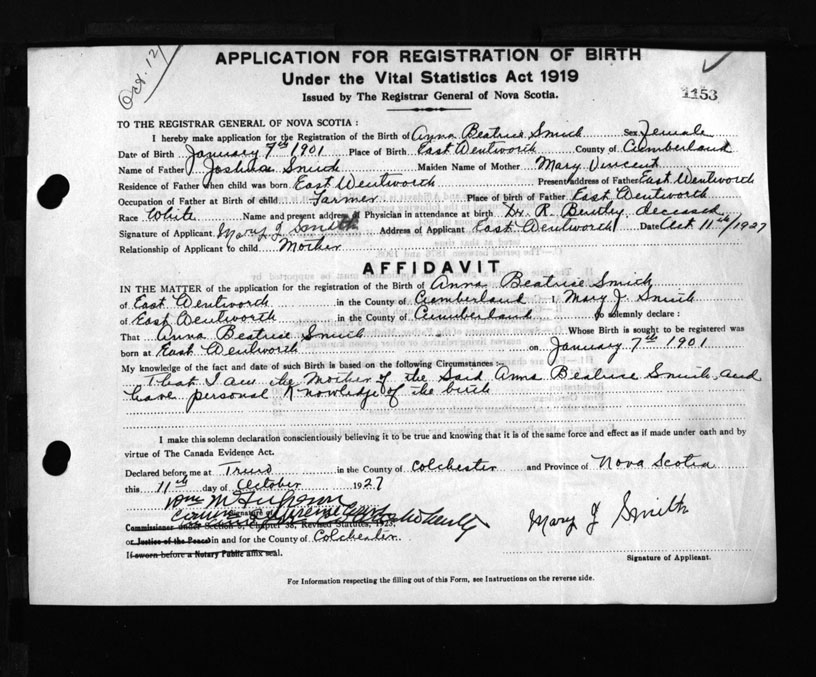 Oct. 12/
APPLICATION FOR REGISTRATION OF BIRTH
Under the Vital Statistics Act 1919
Issued by The Registrar General of Nova Scotia.
1153
TO THE REGISTRAR GENERAL OF NOVA SCOTIA :
I hereby make application for the Registration of the Birth of Anna Beatrice Smith Sex Female
Date of Birth January 7th 1901 Place of Birth East Wentworth County of Cumberland
Name of Father Joshua Smith Maiden Name of Mother Mary Vincent
Residence of Father when child was born East Wentworth Present address of Father East Wentworth
Occupation of Father at Birth of child Farmer Place of birth of Father East Wentworth
Race White Name and present address of Physician in attendance at birth Dr. R. Bentley, deceased
Signature of Applicant Mary J Smith Address of Applicant East Wentworth Date Oct 11th/1927
Relationship of Applicant to child Mother
AFFIDAVIT
IN THE MATTER of the application for the registration of the Birth of Anna Beatrice Smith
of East Wentworth in the County of Cumberland I, Mary J. Smith
of East Wentworth in the County of Cumberland do solemnly declare :
That Anna Beatrice Smith Whose Birth is sought to be registered was
born at East Wentworth on January 7th 1901
My knowledge of the fact and date of such Birth is based on the following Circumstances :-
That I am the Mother of the said Anna Beatrice Smith, and
have personal Knowledge of the birth
I make this solemn declaration conscientiously believing it to be true and knowing that it is of the same force and effect as if made under oath and by
virtue of The Canada Evidence Act.
Declared before me at Truro in the County of Colchester and Province of Nova Scotia
this 11th day of October 1927
Wm
Commissioner under Section 6, Chapter 38, Revised Statutes, 1923.
or Justice of the Peace in and for the County of Colchester.
If sworn before a Notary Public affix seal.
Mary J Smith
Signature of Applicant.
For Information respecting the filling out of this Form, see Instructions on the reverse side.